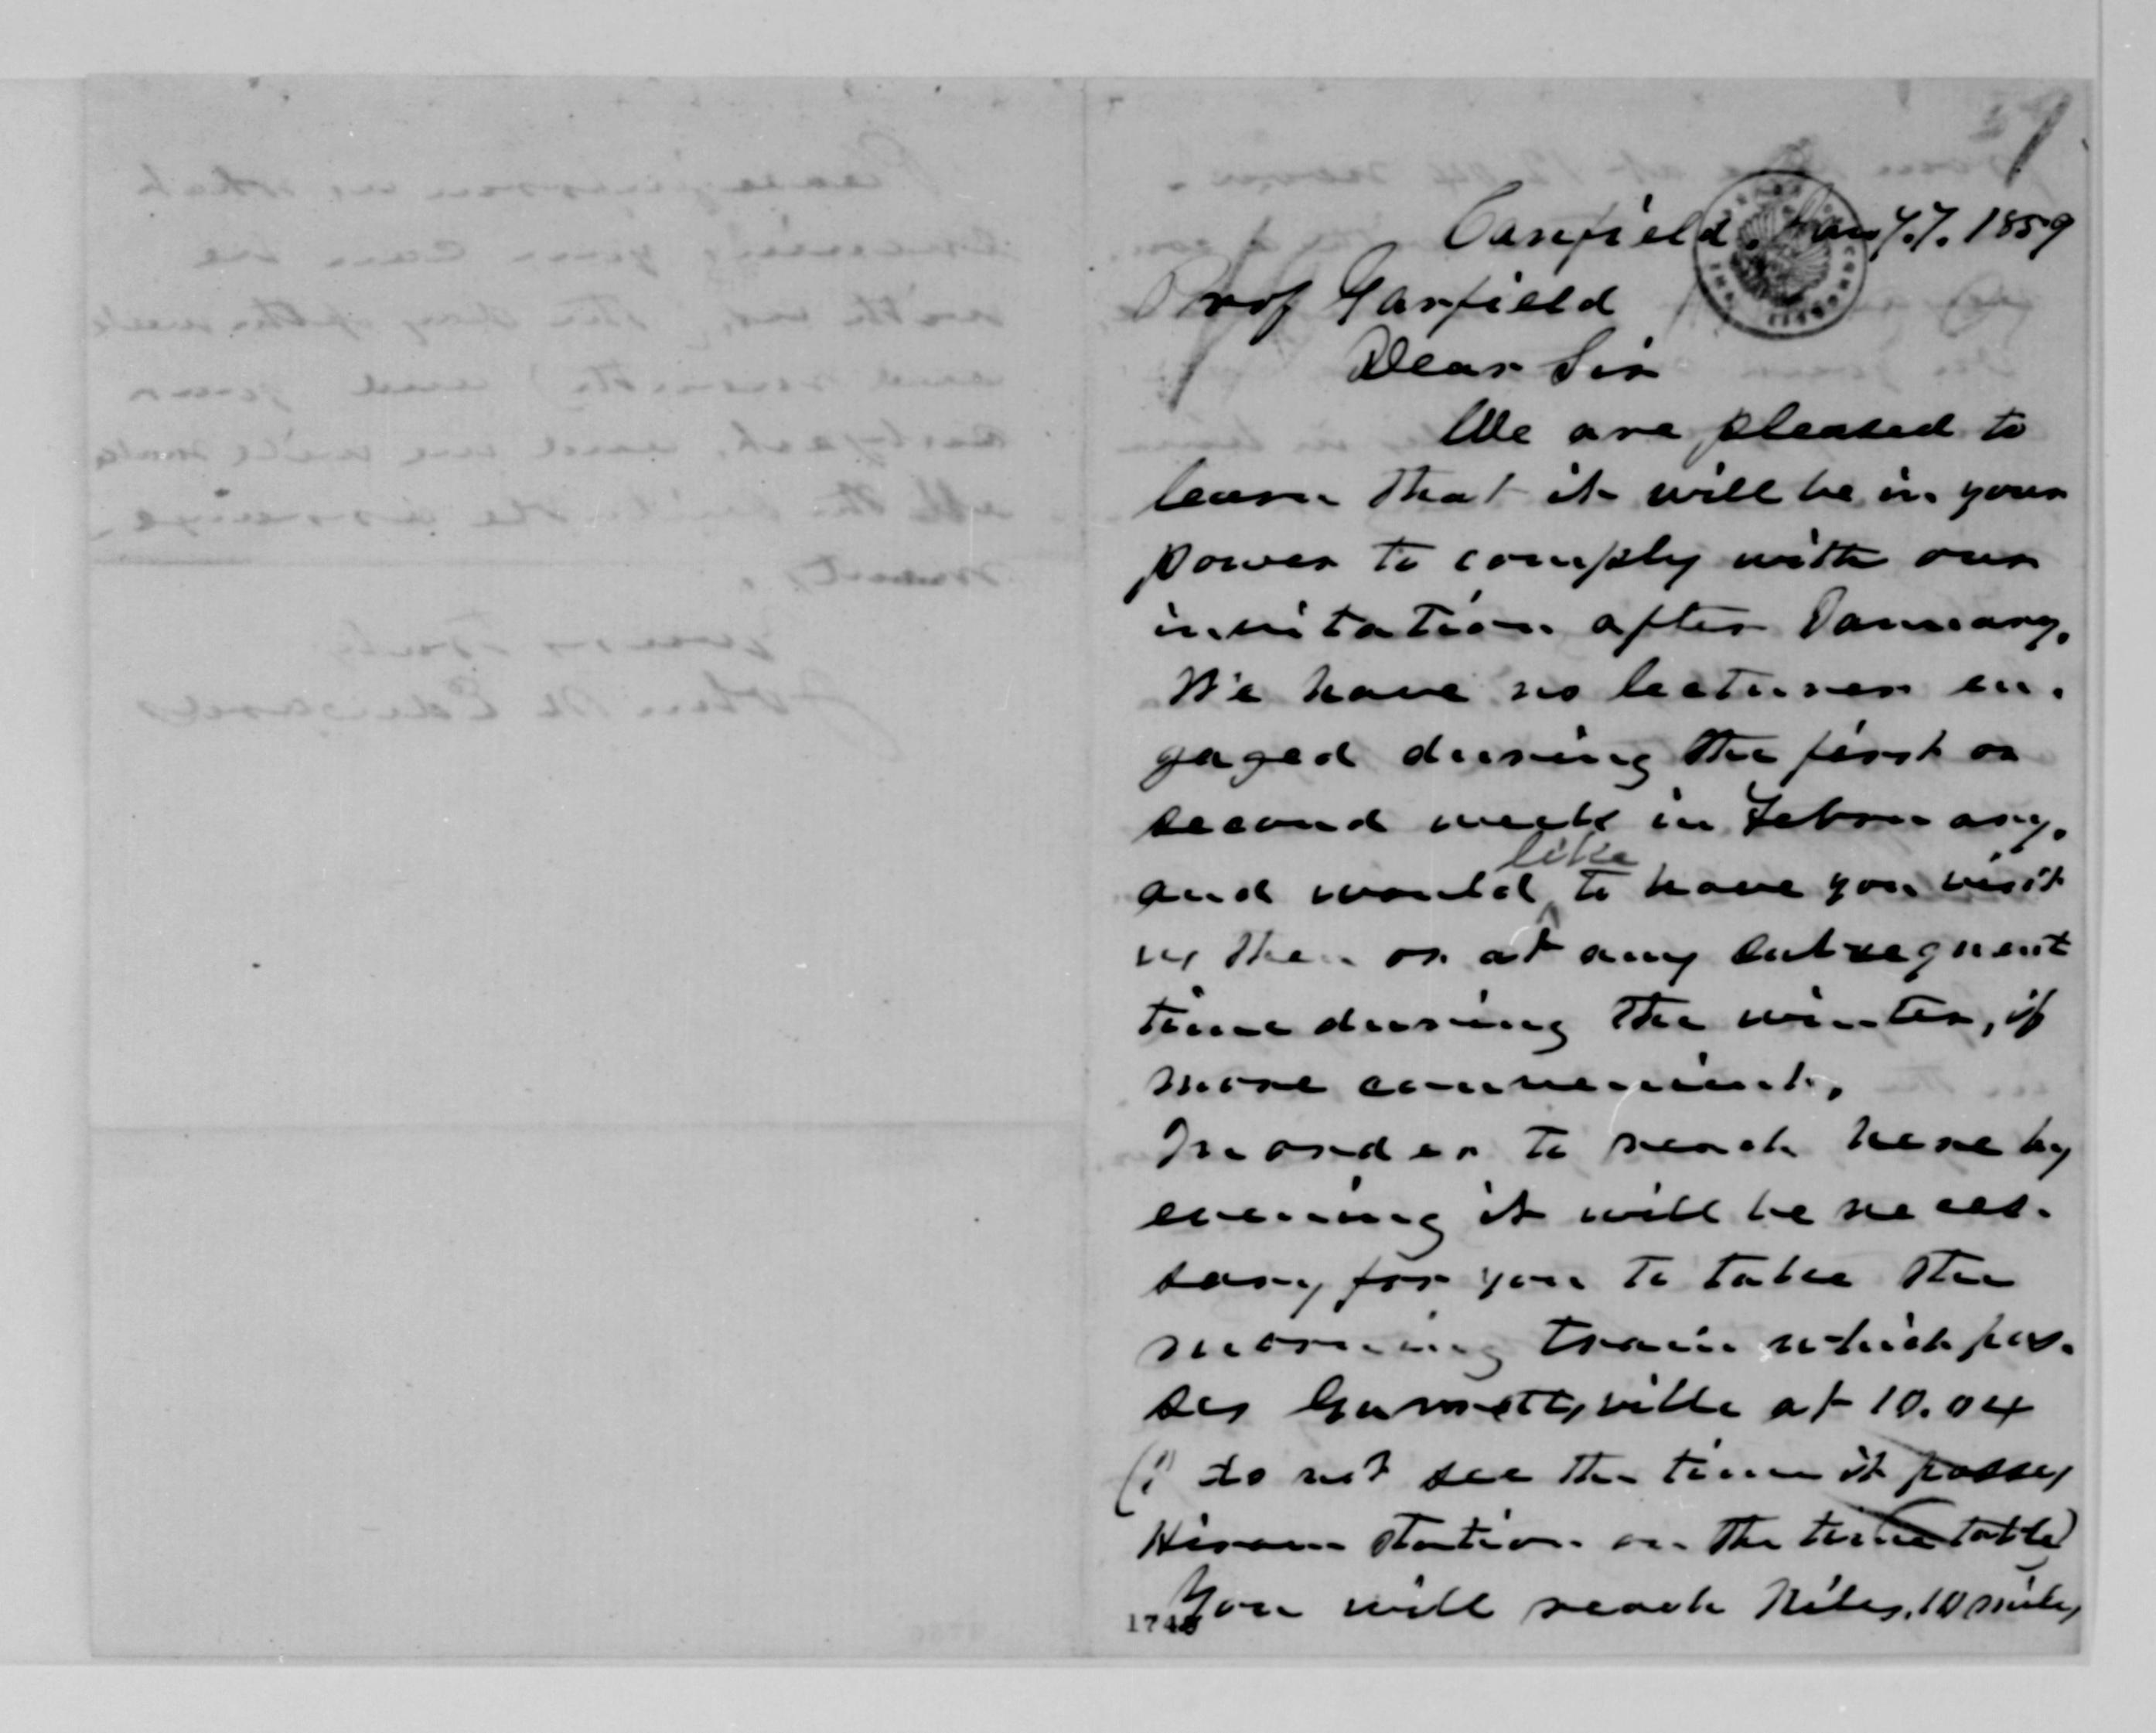 Canfield. Jan 7. 1859
Prof Garfield
Dear Sir
We are pleased to
learn that it will be in your
power to comply with our
invitation after January.
We have no lectures en-
gaged during the first or
second week in February.
and would like to have you visit
us then or at any subsequent
time during the winter, if
more convenient.
In order to reach here by
evening it will be neces-
sary for you to take the
morning train which pas-
ses Garrettsville at 10.04
(I do not see the time it passes
Hiram station on the time table)
You will reach Niles, 10 miles